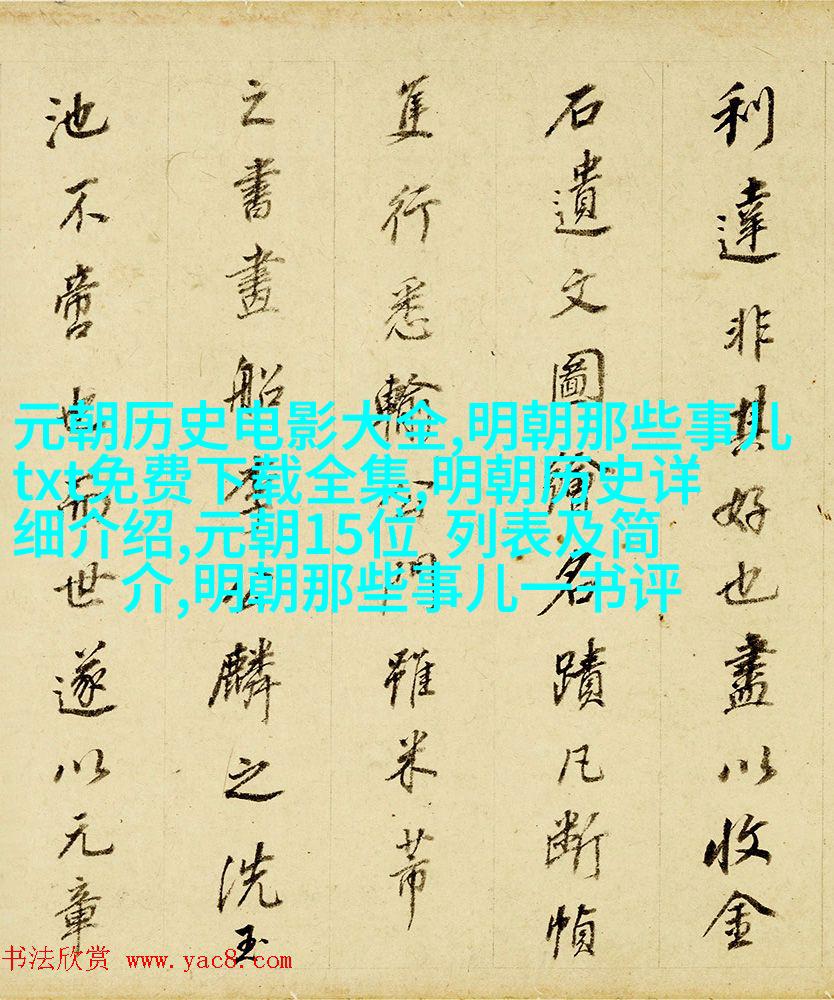 利達非其好也盡以收金
石遺文圖繪名蹟凡斷幀
隻行悉輸公門雖米芾
之書畫船李公麟之洗玉
池不啻也而世遂以元章
元朝历史电影大全,明朝那些事儿
txt免费下载全集,明朝历史详
细介绍,元朝15位 列表及简
介,明朝那些事儿一书评
书法欣赏 www.yac8.com